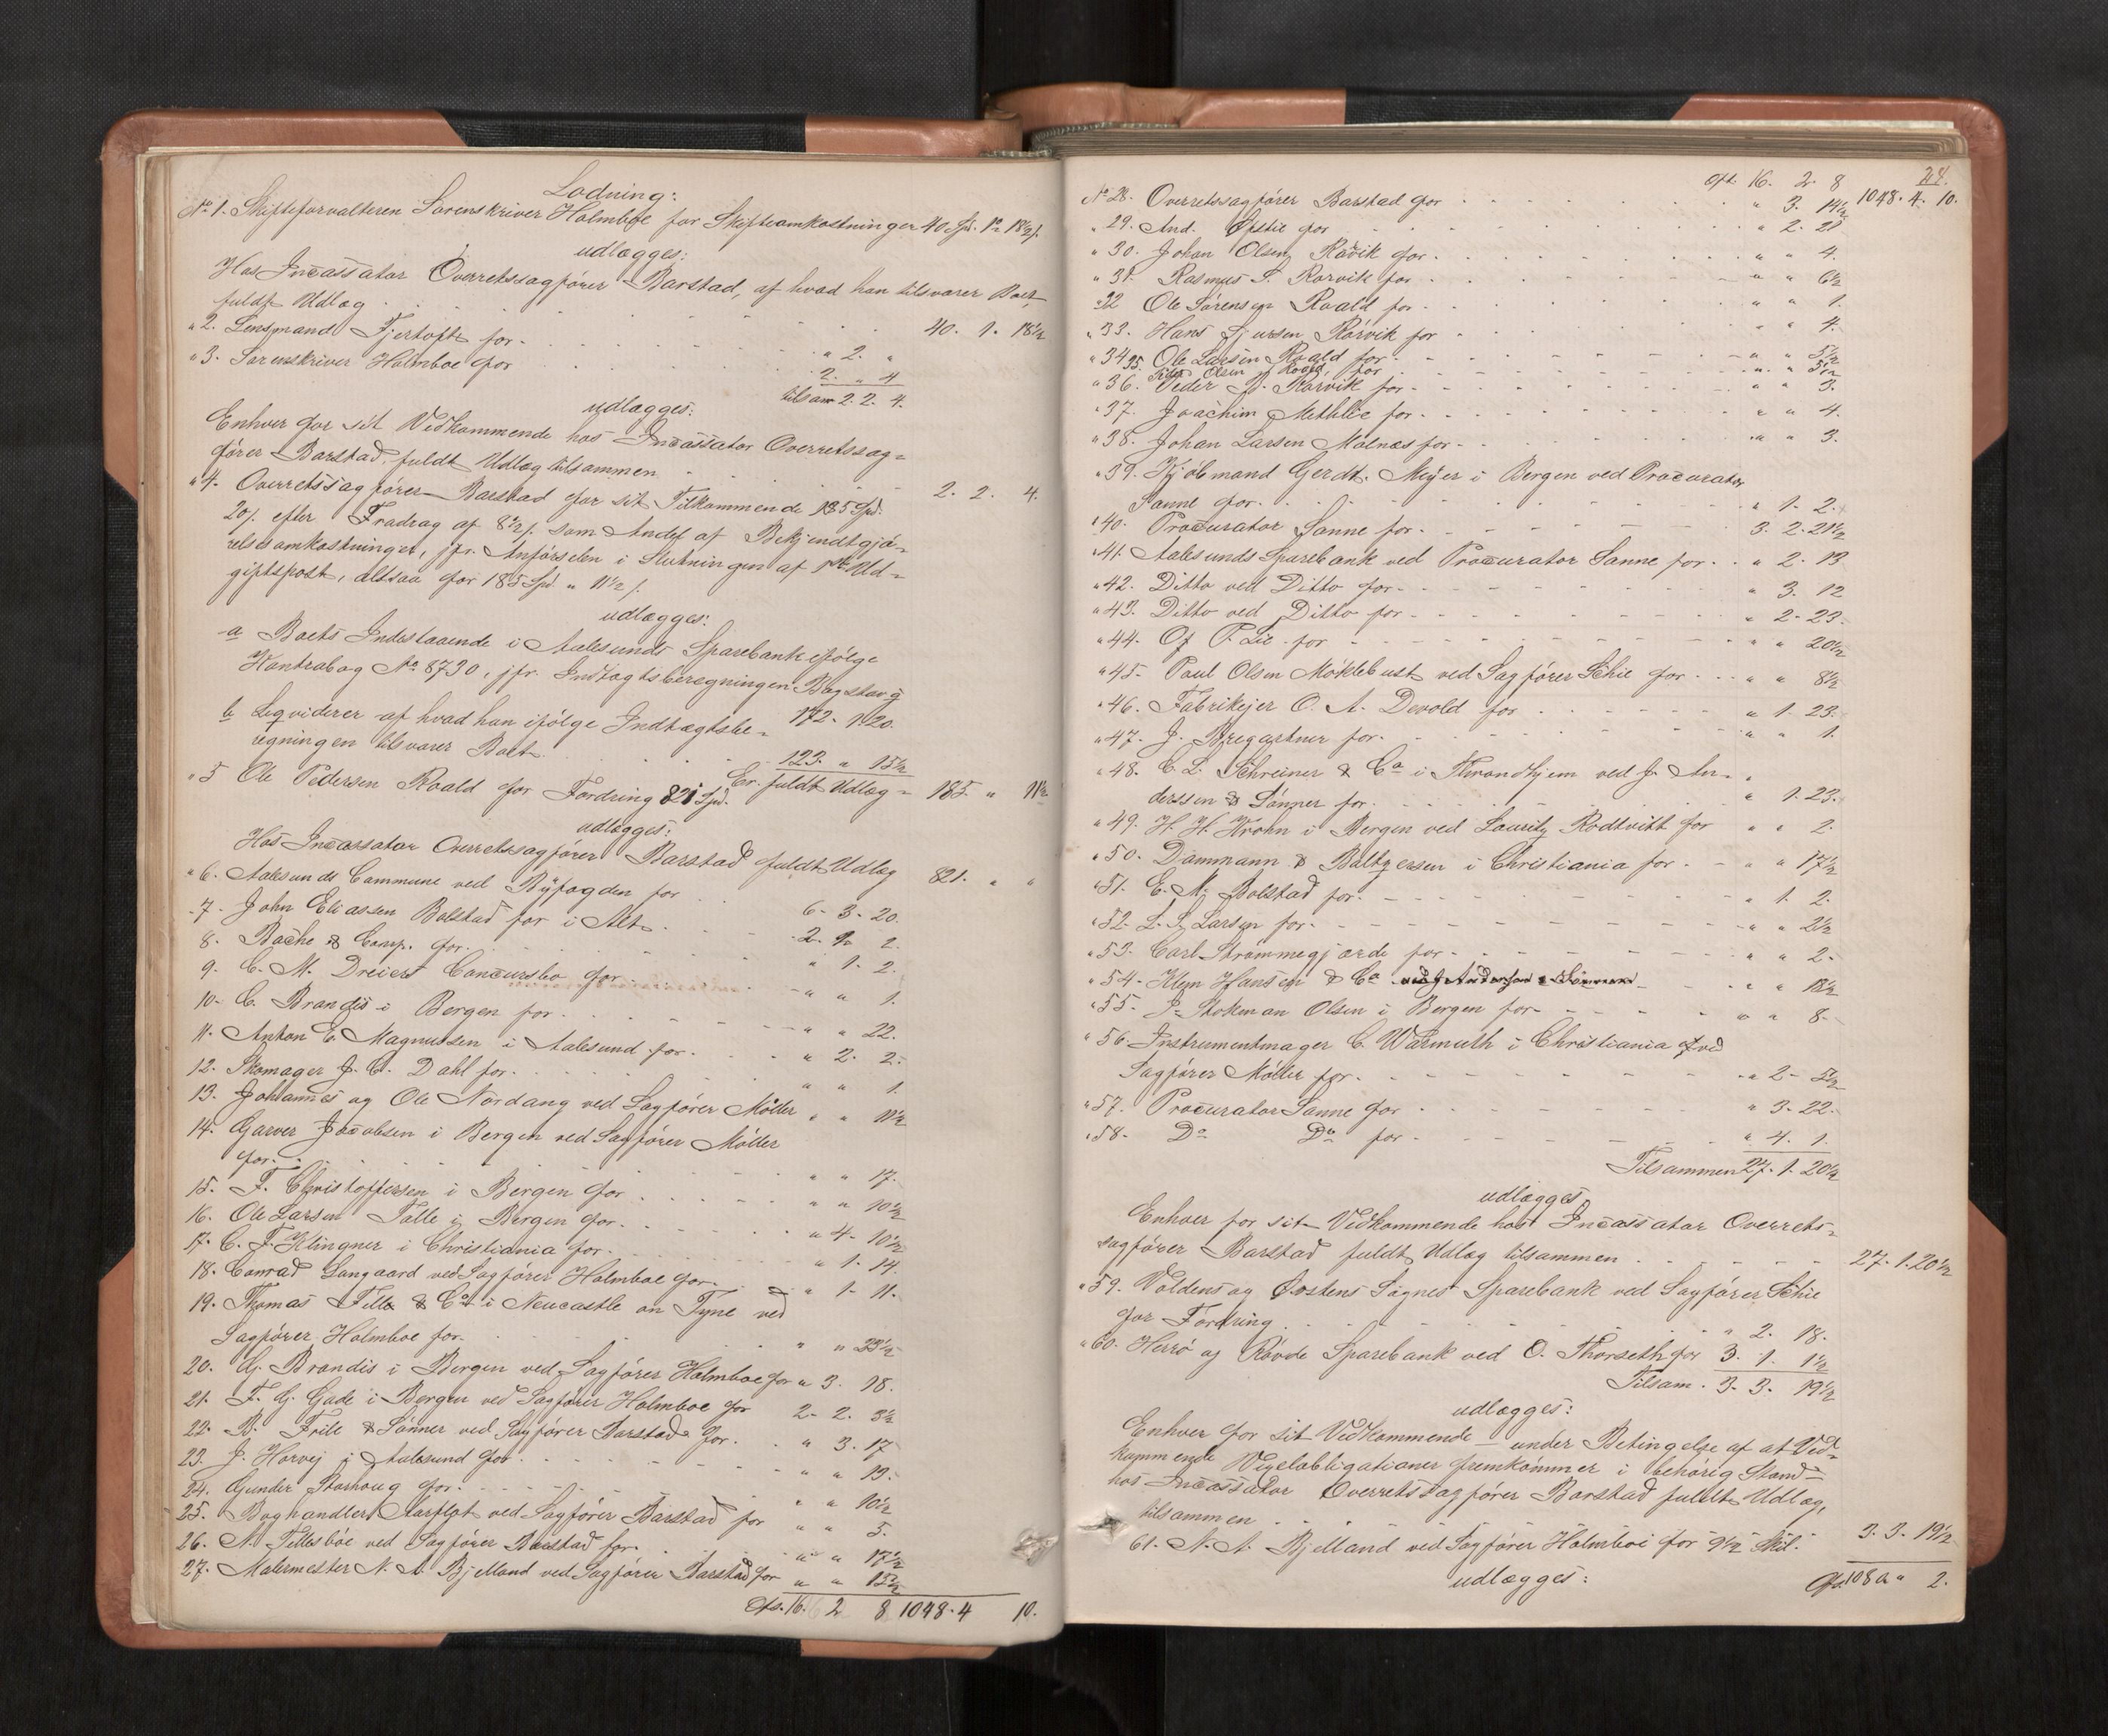 Lodning:
No 1. Skifteforvalteren Sorenskriver Holmboe for Skifteomkostninger 40 Spd. 1 18½ s.
udlægges:
Hos Incassator Overretssagfører Barstad, af hvad han tilsvarer Boet
fuldt Udlæg . . . 40. 1. 18½
" 2. Lensmand Fjertoft for . . . " 2. "
" 3. Sorenskriver Holmboe for . . . 2. " 4
tilsam 2. 2. 4.
udlægges:
Enhver for sit Vedkommende hos Incassator Overretssag=
fører Barstad, fuldt Udlæg tilsammen . . . 2. 2. 4.
" 4. Overretssagfører Barstad for sit Tilkommende 185 Spd.
20 s. efter Fradrag af 8½ s. som Andel af Bekjendtgjø=
relsesomkostninger, jfr. Anførselen i Slutningen af 1ste Ud=
giftspost, altsaa for 185 Spd. " 11½ s.
udlægges:
a Boets Indestaaende i Aalesunds Sparebank ifølge
Kontrabog No 8730, jfr. Indtægtsberegningen Bogstav g
172. 1. 20.
b Liqviderer af hvad han ifølge Indtægtsbe=
regningen tilsvarer Boet . . . 123. " 15½
Er fuldt Udlæg = 185. " 11½
" 5 Ole Pedersen Roald for Fordring 821 Spd.
udlægges:
Hos Incassator Overretssagfører Barstad fuldt Udlæg 821. " "
" 6. Aalesunds Commune ved Byfogden for . . . 6. 3. 20.
" 7. John Eliassen Bolstad for i Alt . . . 2. " 2.
8. Bache & Comp. for . . . " 1. 2.
9. C. M. Dreiers Concursbo for . . . " " 1.
10. C. Brandis i Bergen for . . . " " 22.
11. Anton E. Magnussen i Aalesund for . . . " 2. 2.
12. Skomager J. C. Dahl for . . . " " 1.
13. Johannes og Ole Nordang ved Sagfører Møller " " 11½
14. Garver Jacobsen i Bergen ved Sagfører Møller
for . . . " " 17.
15. F. Christoffersen i Bergen for . . . " " 10½
16. Ole Larsen Tolle i Bergen for . . . " 4. 10½
17. C. F. Klingner i Christiania for . . . " 1. 14.
18. Conrad Langaard ved Sagfører Holmboe for . . . " 1. 11.
19. Thomas & Co i Newcastle on Tyne ved
Sagfører Holmboe for . . . " " 23½
20. G. Brandis i Bergen ved Sagfører Holmboe for " 3. 18.
21. F. G. Gade i Bergen ved Sagfører Holmboe for 2. 2. 3½
22. B. Friele & Sønner ved Sagfører Barstad for . . " 3. 17
23. J. Horvej i Aalesund for . . . " " 19.
24. Gunder Storhoug for . . . " " 10½
25. Boghandler Aarflot ved Sagfører Barstad for " " 5.
26. N. Tillesbøe ved Sagfører Barstad for . . . " " 17½
27. Malermester N. A. Bjelland ved Sagfører Barstad for " " 15½
Ofs. 16. 2 8 1048. 4 10.
24.
Oft. 16. 2. 8 1048. 4. 10.
No 28. Overretssagfører Barstad for . . . " 3. 14½
" 29. And. Opstie for . . . " 2. 21
" 30. Johan Olsen Rovik for . . . " " 4.
" 31. Rasmus S. Rorvik for . . . " " 6½
" 32 Ole Sørensen Roald for . . . " " 1.
" 33. Hans Sjursen Rorvik for . . . " " 4.
" 34 Ole Larsen Roald for . . . " " 5½
35. Olsen Roald, for . . . " " 5½
" 36. Peder Rorvik for . . . " " 3.
" 37. Joachim Methlie for . . . " " 4.
" 38. Johan Larsen Molnæs for . . . " " 3.
" 39. Kjøbmand Gerdt Meyer i Bergen ved Procurator
Sanne for . . . " 1. 2.
" 40. Procurator Sanne for . . . 3. 2. 21½
" 41. Aalesunds Sparebank ved Procurator Sanne for . . " 2. 13
" 42. Ditto ved Ditto for . . . " 3. 12
" 43. Ditto ved Ditto for . . . " 2. 23.
" 44. Of P. Lie for . . . " " 20½
" 45. Paul Olsen Møklebust ved Sagfører Schie for . . . " " 8½
" 46. Fabrikejer O. A. Devold for . . . " 1. 23.
" 47. J. Bregartner for . . . " " 1.
" 48. C. L. Schreiner & Co i Throndhjem ved J. An=
derssen & Sønner for . . . " 1. 23.
" 49. H. H. Krohn i Bergen ved Lauritz Rodtvitt for " " 2.
" 50. Dammann & Baltzersen i Christiania for . . " " 17½
" 51. E. M. Bolstad for . . . " 1. 2.
" 52. L. S. Larsen for . . . " " 2½
" 53. Carl Strømmegjærde for . . . " " 2.
" 54. Klem Hansen & Co ved J. Andersen & Sønner . . " " 18½
" 55. J. Stokman Olsen i Bergen for . . . " " 8.
" 56. Instrumentmager C. Warmuth i Christiania ved
Sagfører Møller for . . . " 2. 5½
" 57. Procurator Sanne for . . . " 3. 22.
" 58. Do Do for . . . " 4. 1.
Tilsammen 27. 1. 20½
udlægges
Enhver for sit Vedkommende hos Incassator Overrets=
sagfører Barstad fuldt Udlæg tilsammen . . . 27. 1. 20½
" 59. Voldens og Ørstens Sognes Sparebank ved Sagfører Schie
for Fordring . . . " 2. 18.
" 60. Herrø og Røvde Sparebank ved O. Thorseth for 3. 1. 1½
Tilsam. 3. 3. 19½
udlægges:
Enhver for sit Vedkommende – under Betingelse af at Ved=
kommende Vexelobligationer fremkommer i behørig Stand –
hos Incassator Overretssagfører Barstad fuldt Udlæg,
tilsammen . . . 3. 3. 19½
61. N. A. Bjelland ved Sagfører Holmboe for 9½ Skil.
udlægges:
Ofs. 1080 " 2.